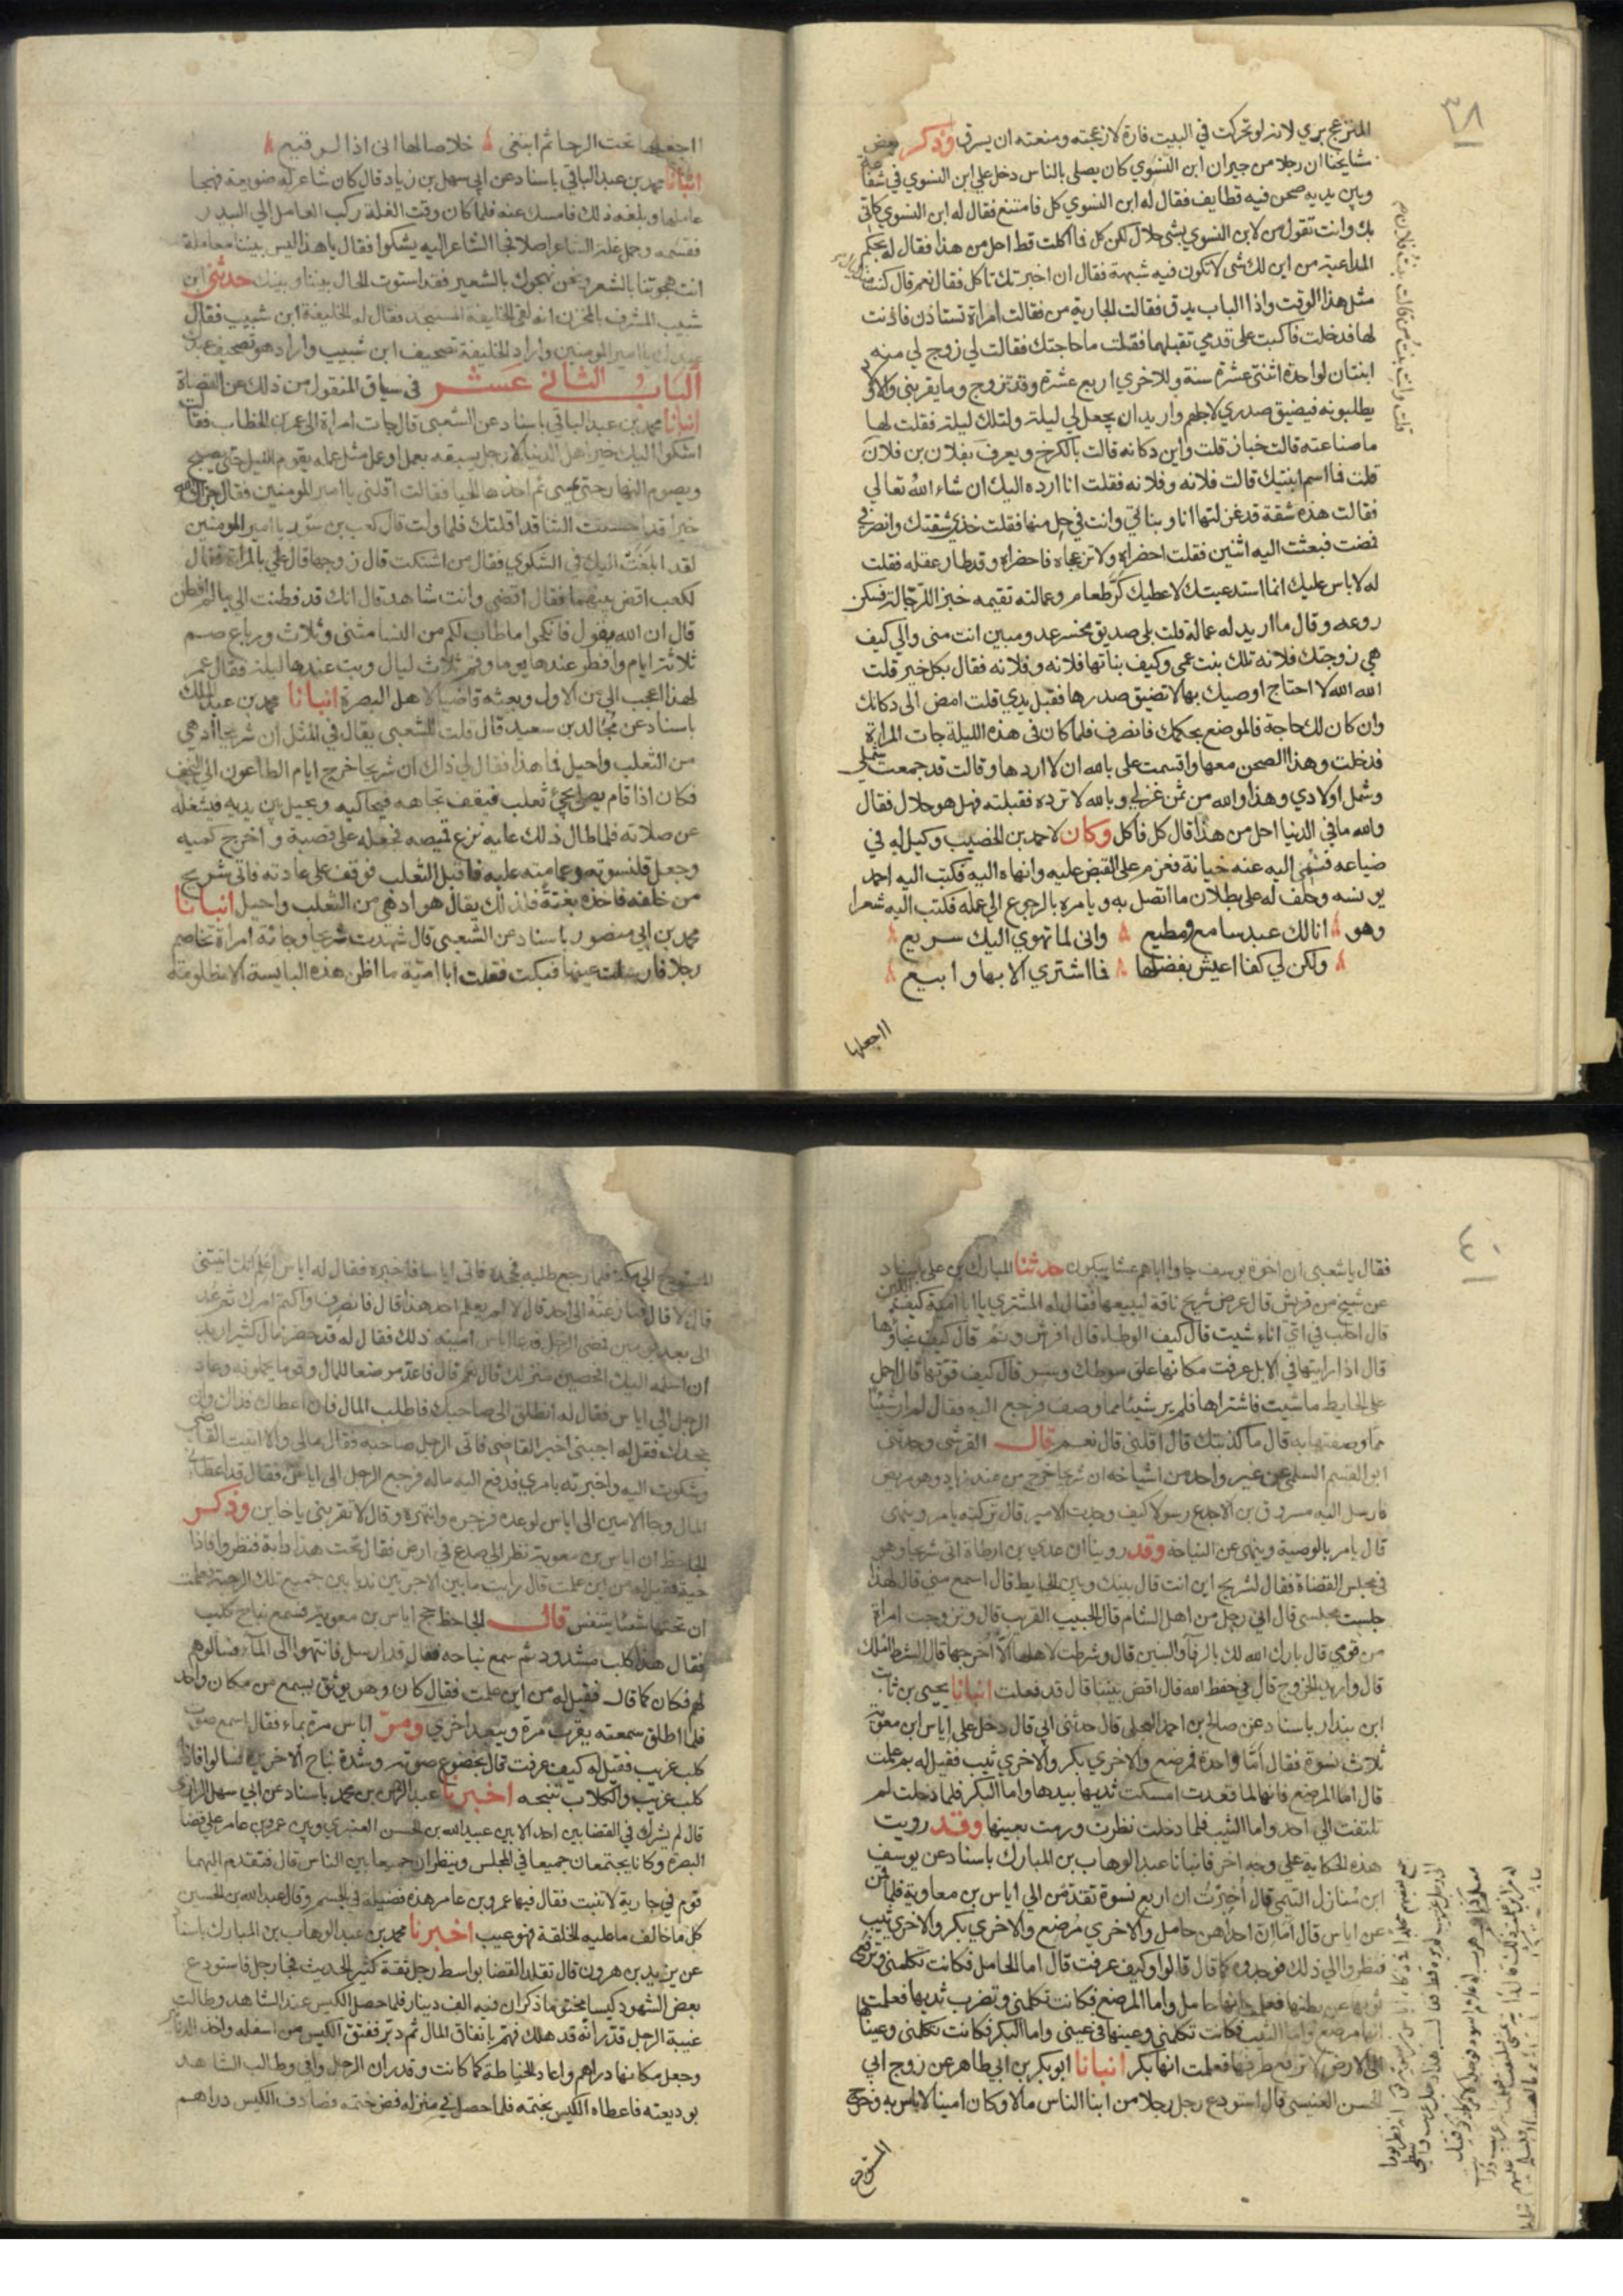 ٣٨
المنزعج بري لانه لو تحركت في البيت فارة لازعجته ومنعته ان يسرق وذكر بعض
شايخنا ان رجلا من جيران ابن النسوي كان يصلي بالناس دخل علي ابن النسوي في شفاعة
وبين يديه صحن فيه قطايف فقال له ابن النسوي كل فامتنع فقال له ابن النسوي كاني
بك وانت تقول من لابن النسوي بشي حلال لكن كل فما اكلت قط احل من هذا فقال له بحكم
المداعبة من اين لك شي لا تكون فيه شبهة فقال ان اخبرتك تاكل فقال نعم قال كنت
مثل هذا الوقت واذا الباب يدق فقالت الجارية من فقالت امراة تستاذن فاذنت
لها فدخلت فاكبت على قدمي تقبلهما فقلت ما حاجتك فقالت لي زوج لي منه
ابنتان لواحدة اثنتى عشرة سنة وللاخري اربع عشرة وقد تزوج وما يقربني والاولاد
يطلبونه فيضيق صدري لاجلهم واريد ان يجعل لي ليلة ولتلك ليلة فقلت لها
ما صناعته قالت خباز قلت واين دكانه قالت بالكرخ ويعرف بفلان بن فلان
قلت فما اسم ابنتيك قالت فلانه وفلانه فقلت انا ارده اليك ان شاء الله تعالي
فقالت هذه شقة قد غزلتها انا وبناتي وانت في حل منها فقلت خذي شقتك وانصرفي
فمضت فبعثت اليه اثنين فقلت احضراه ولا تزعجاه فاحضراه وقد طار عقله فقلت
له لا باس عليك انما استدعيتك لاعطيك كر طعام وعمالته تقيمه خبز للرجالة فسكن
روعه وقال ما اريد له عمالة قلت بلى صديق مخسر عدو مبين انت مني والي كيف
هي زوجتك فلانه تلك بنت عمى وكيف بناتها فلانه وفلانه فقال بكل خير قلت
الله الله لا احتاج اوصيك بها لا تضيق صدرها فقبل يدي قلت امض الى دكانك
وان كان لك حاجة فالموضع بحكمك فانصرف فلما كان في هذه الليلة جات المراة
فدخلت وهذا الصحن معها واقسمت على بالله ان لا اردها وقالت قد جمعت شملي
وشمل اولادي وهذا والله من ثمن غزلي وبالله لا ترده فقبلته فهل هو حلال فقال
والله ما في الدنيا احل من هذا قال كل فاكل وكان لاحمد بن الخصيب وكيل له في
ضياعه فنهي اليه عنه خيانة فعزم على القبض عليه وانهاه اليه فكتب اليه احمد
يونسه وحلف له على بطلان ما اتصل به ويامره بالرجوع الي عمله فكتب اليه شعرا
وهو انا لك عبد سامع ومطيع وانى لما تهوي اليك سريع
ولكن لي كفا اعيش بفضلها فما اشتري الا بها وابيع
ااجعلها
ااجعلها تحت الرحا ثم ابتغى خلاصا لها انى اذا لرقيع
انبانا محمد بن عبد الباقي باسناد عن ابي سهل بن زياد قال كان شاعر له ضويعة فهجا
عاملها وبلغه ذلك فامسك عنه فلما كان وقت الغلة ركب العامل الي البيدر
فقسمه وحمل غلة الشاعر اصلا فجا الشاعر اليه يشكوا فقال يا هذا ليس بيننا معاملة
انت هجوتنا بالشعر ونحن نهجوك بالشعير فقد استوت الحال بيننا وبينك حدثني ابن
شبيب المشرف بالمخزن انه لقى الخليفة المستنجد فقال له الخليفة ابن شبيب فقال
عبدك يا امير المومنين واراد الخليفة تصحيف ابن شبيب واراد هو تصحيف عبدك
الباب الثاني عشر في سياق المنقول من ذلك عن القضاة
انبانا محمد بن عبد الباقي باسناد عن الشعبي قال جات امراة الى عمر بن الخطاب فقالت
اشكوا اليك خير اهل الدنيا الا رجل يسبقه بعمل او عمل مثل عمله يقوم الليل حتى يصبح
ويصوم النهار حتى يمسى ثم اخذها الحيا فقالت اقلني يا امير المومنين فقال جزاك الله
خيرا قد احسنت الثنا قد اقلتك فلما ولت قال كعب بن سور يا امير المومنين
لقد ابلغت اليك في الشكوي فقال من اشتكت قال زوجها قال علي بالمراة فقال
لكعب اقض بينهما فقال اقضي وانت شاهد قال انك قد فطنت الي ما لم افطن
قال ان الله يقول فانكحوا ما طاب لكم من النسا مثنى وثلاث ورباع صم
ثلاثة ايام وافطر عندها يوما وقم ثلاث ليال وبت عندها ليلة فقال عمر
لهذا اعجب الي من الاول وبعثه قاضيا لاهل البصرة انبانا محمد بن عبد الملك
باسناد عن مجالد بن سعيد قال قلت للشعبي يقال في المثل ان شريحا ادهي
من الثعلب واحيل فما هذا فقال لي ذاك ان شريحا خرج ايام الطاعون الي النجف
فكان اذا قام يصلي يجئ ثعلب فيقف تجاهه فيحاكيه ويخيل بين يديه فيشغله
عن صلاته فلما طال ذلك عليه نزع قميصه فجعله على قصبة واخرج كميه
وجعل قلنسوته وعمامته عليه فاقبل الثعلب فوقف على عادته فاتي شريح
من خلفه فاخذه بغتة فلذلك يقال هو ادهي من الثعلب واحيل انبانا
محمد بن ابي منصور باسناد عن الشعبي قال شهدت شريحا وجائه امراة تخاصم
رجلا فارسلت عينها فبكت فقلت ابا امية ما اظن هذه البايسة الا مظلومة
٤٠
فقال يا شعبي ان اخوة يوسف جاوا اباهم عشا يبكون حدثنا المبارك بن علي باسناد
عن شيخ من قريش قال عرض شريح ناقة ليبيعها فقال له المشتري يا ابا امية كيف لبنها
قال احلب في اي اناء شيت قال كيف الوطاء قال افرش ونم قال كيف نجاؤها
قال اذا رايتها في الابل عرفت مكانها علق سوطك وسر قال كيف قوتها قال احمل
على الحايط ما شيت فاشتراها فلم ير شيئا مما وصف فرجع اليه فقال لم ار شيئا
مما وصفتها به قال ما كذبتك قال اقلني قال نعم قال القرشى وحدثني
ابو القسم السلمي عن غير واحد من اشياخه ان شريحا خرج من عند زياد وهو مريض
فارسل اليه مسروق بن الاجدع رسولا كيف وجدت الامير قال تركته يامر وينهى
قال يامر بالوصية وينهى عن النياحة وقد روينا ان عدي بن ارطاة اتى شريحا وهو
في مجلس القضاة فقال لشريح اين انت قال بينك وبين الحايط قال اسمع مني قال لهذا
جلست مجلسى قال اني رجل من اهل الشام قال الحبيب القريب قال وتزوجت امراة
من قومي قال بارك الله لك بالرفآ والبنين قال وشرطت لاهلها الا اخرجها قال الشرط املك
قال واريد الخروج قال في حفظ الله قال اقض بيننا قال قد فعلت انبانا يحيى بن ثابت
ابن بندار باسناد عن صالح بن احمد العجلى قال حدثنى ابي قال دخل على اياس ابن معوية
ثلاث نسوة فقال اما واحدة فمرضع والاخري بكر والاخري ثيب فقيل له بم علمت
قال اما المرضع فانها لما قعدت امسكت ثديها بيدها واما البكر فلما دخلت لم
تلتفت الي احد واما الثيب فلما دخلت نظرت ورمت بعينها وقد رويت
هذه الحكاية على وجه اخر فانبانا عبد الوهاب بن المبارك باسناد عن يوسف
التيمي قال اخبرت ان اربع نسوة تقدمن الي اياس بن معاوية فلما قمن
عن اياس قال اما ان احداهن حامل والاخري مرضع والاخري بكر والاخري ثيب
فنظروا الي ذلك فوجدوه كما قال قالوا وكيف عرفت قال اما الحامل فكانت تكلمني وترفع
ثوبها عن بطنها فعلمت انها حامل واما المرضع فكانت تكلمني وتضرب ثديها فعلمت
انها مرضع واما الثيب فكانت تكلمني وعينها في عيني واما البكر فكانت تكلمني وعينها
الى الارض لا ترفع طرفها فعلمت انها بكر انبانا ابو بكر بن ابي طاهر عن زوج ابي
الحسن العنبسى قال استودع رجل رجلا من ابنا الناس مالا وكان امينا لا باس به وخرج
المستودع
المستودع الي مكة فلما رجع طلبه فجحده فاتي اياسا فاخبره فقال له اياس اعلم انك اتيتني
قال لا قال فنازعته الى احد قال لا لم يعلم احد هذا قال فانصرف واكتم امرك ثم عد
الى بعد يومين فمضى الرجل فدعا اياس امينه ذلك فقال له قد حضر مال كثير اريد
ان اسلمه اليك افحصين منزلك قال نعم قال فاعد موضعا للمال وقوما يحملونه وعاد
الرجل الي اياس فقال له انطلق الى صاحبك فاطلب المال فان اعطاك فذاك وان
جحدك فقل له اجبني اخبر القاضي فاتي الرجل صاحبه فقال مالي والا اتيت القاضي
وشكوت اليه واخبرته بامري فدفع اليه ماله فرجع الرجل الى اياس فقال قد اعطاني
المال وجا الامين الى اياس لوعده فزجره وانتهره وقال لا تقربني يا خاين وذكر
الجاحظ ان اياس بن معوية نظر الي صدع في ارض فقال تحت هذا دابة فنظروا فاذا
حية فقيل له من اين علمت قال رايت ما بين الاجرتين نديا بين جميع تلك الرحبة فعلمت
ان تحتها شيئا يتنفس قال الجاحظ حج اياس بن معوية فسمع نباح كلب
فقال هذا كلب مشدود ثم سمع نباحه فقال قد ارسل فانتهوا الى المآء فسالوهم
لهم فكان كما قال فقيل له من اين علمت فقال كان وهو موثق يسمع من مكان واحد
فلما اطلق سمعته يقرب مرة ويبعد اخري ومر اياس مرة بماء فقال اسمع صوت
كلب غريب فقيل له كيف عرفت قال بخضوع صوته وشدة نباح الاخرين فسالوا فاذا
كلب غريب والكلاب تنبحه اخبرنا عبد الرحمن بن محمد باسناد عن ابي سهل الرازي
قال لم يشرك في القضا بين احد الا بين عبيد الله بن الحسن العنبري وبين عمر بن عامر علي قضا
البصرة وكانا يجتمعان جميعا في المجلس وينظران جميعا بين الناس قال فتقدم اليهما
قوم في جارية لا تنبت فقال فيها عمر بن عامر هذه فضيلة في الجسم وقال عبد الله بن الحسين
كل ما خالف ما عليه الخلقة فهو عيب اخبرنا محمد بن عبد الوهاب بن المبارك باسناد
عن يزيد بن هرون قال تقلد القضا بواسط رجل ثقة كثير الحديث فجا رجل فاستودع
بعض الشهود كيسا مختوما ذكر ان فيه الف دينار فلما حصل الكيس عند الشاهد وطالت
غيبة الرجل قدر انه قد هلك فهم بانفاق المال ثم دبر ففتق الكيس من اسفله واخذ الدنانير
وجعل مكانها دراهم واعاد الخياطة كما كانت وقدر ان الرجل وافي وطالب الشاهد
بوديعته فاعطاه الكيس بختمه فلما حصل في منزله فض ختمه فصادف الكيس دراهم